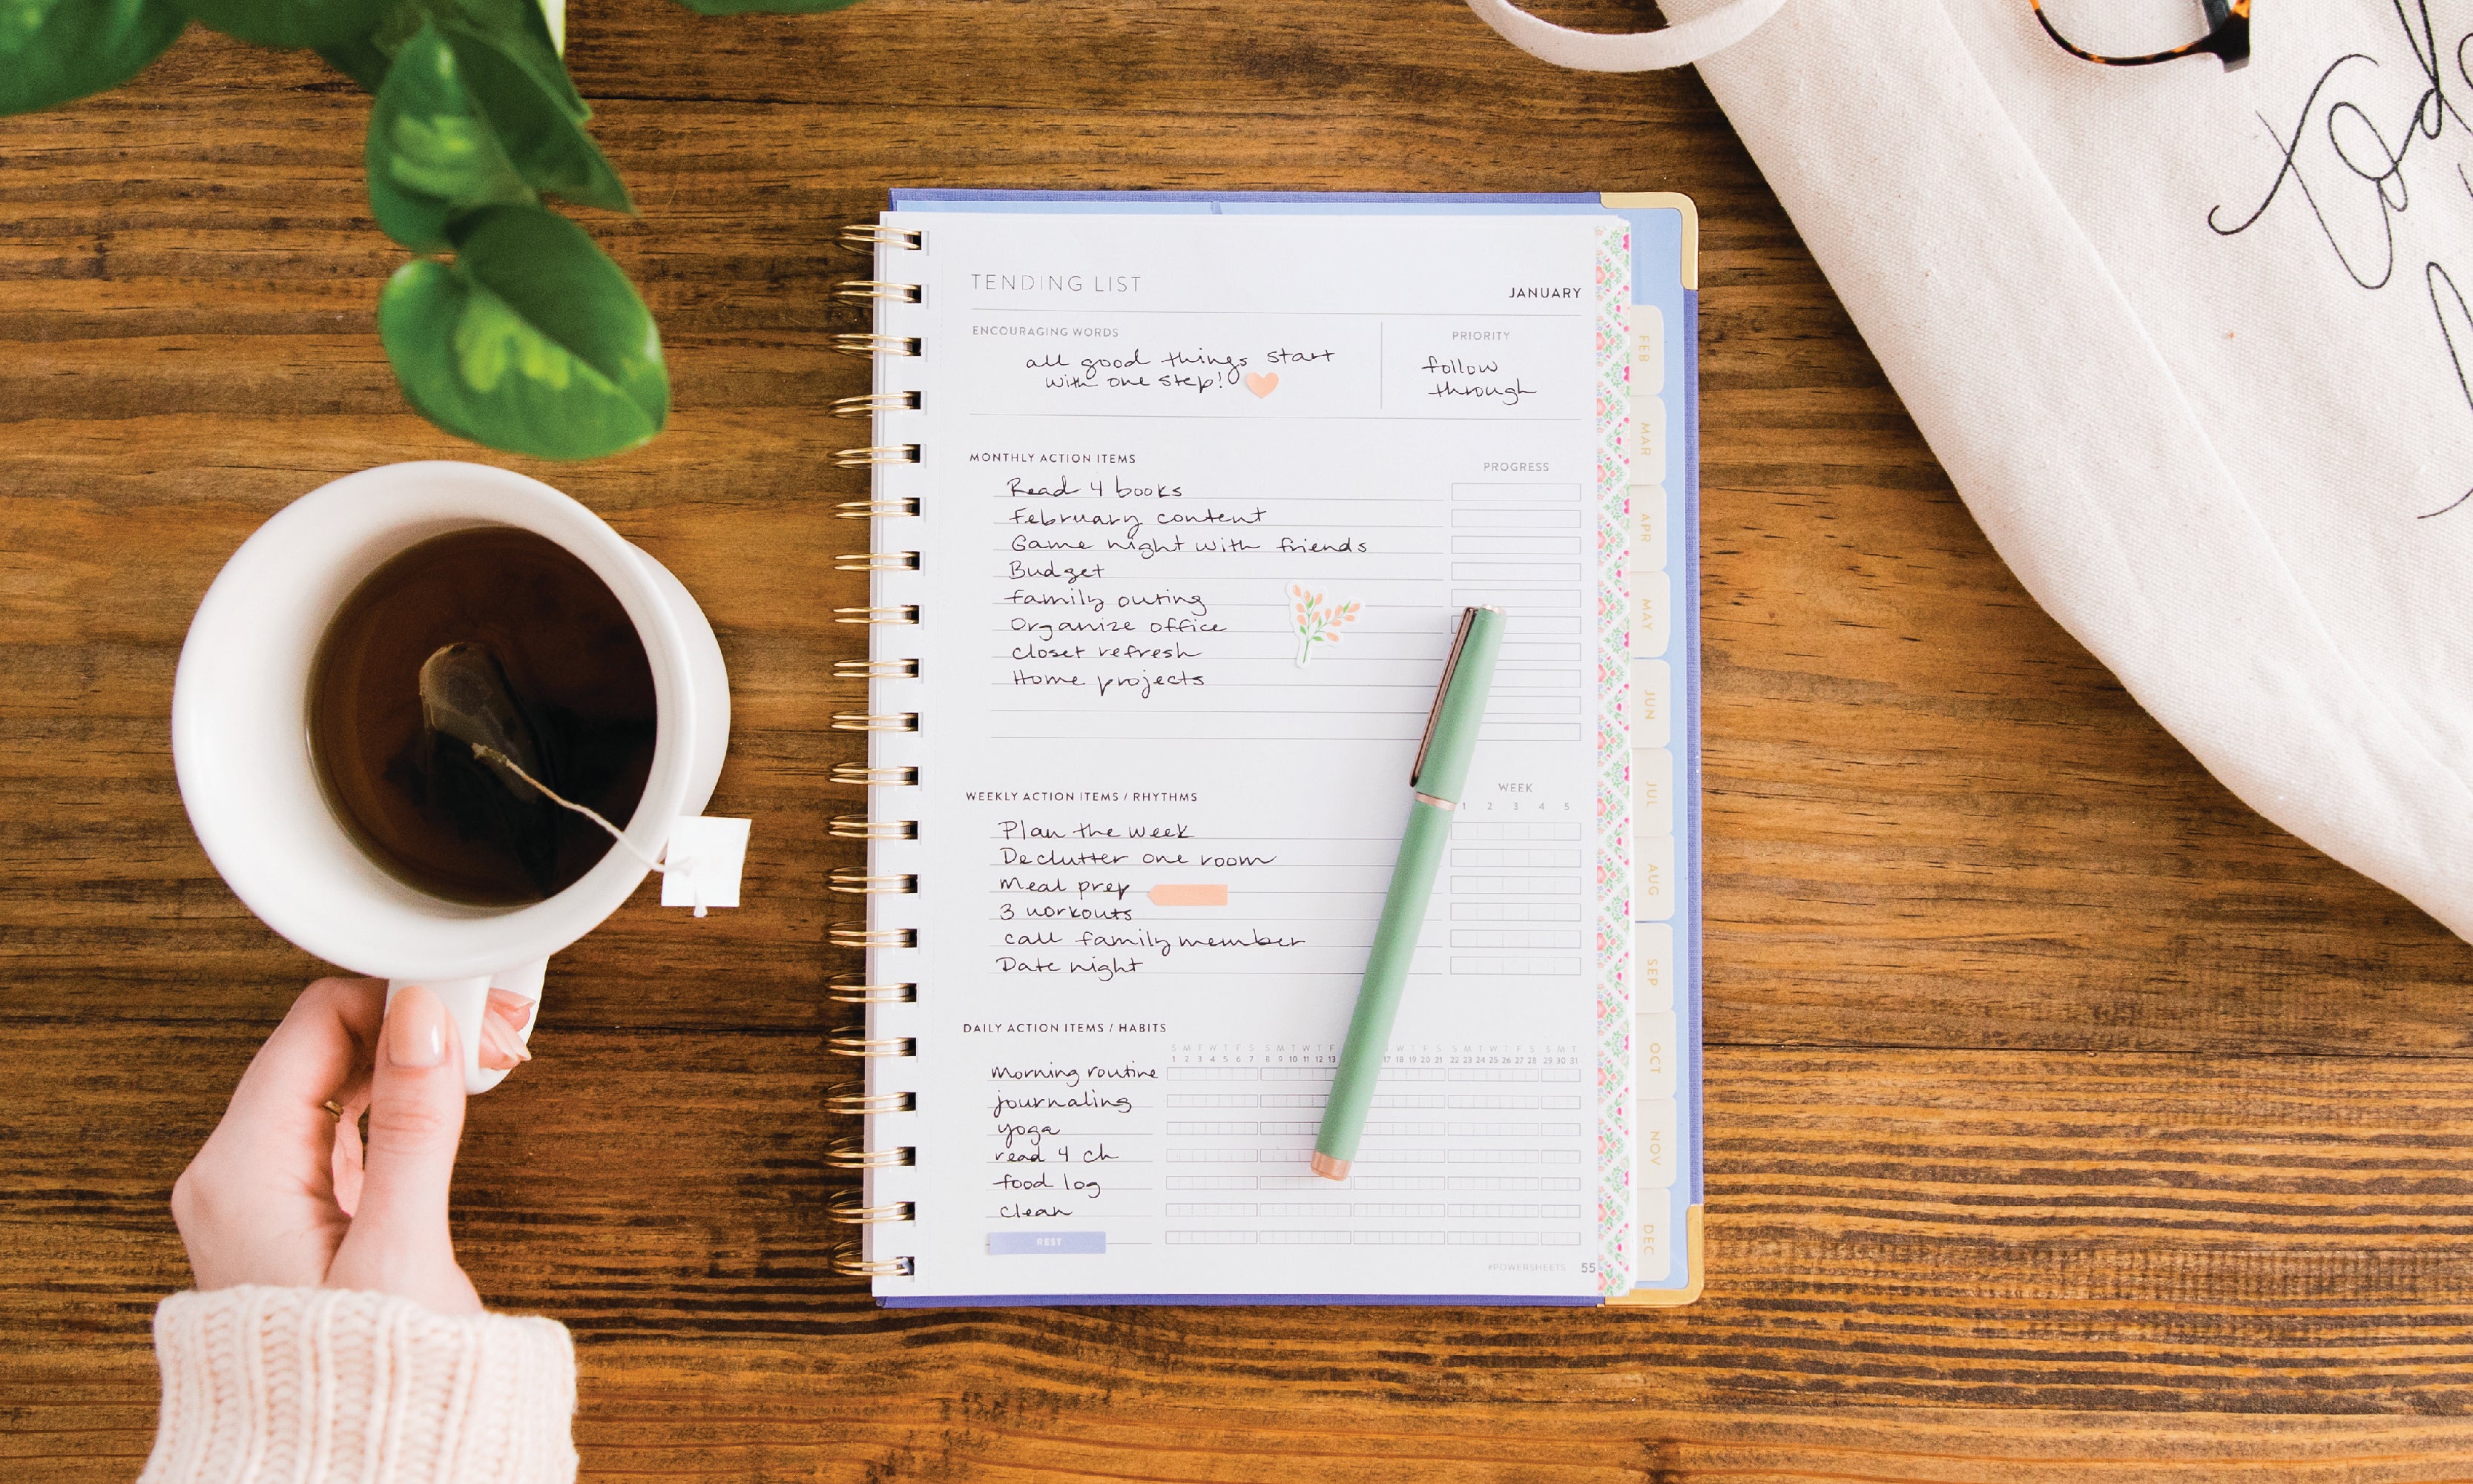 TENDING LIST
JANUARY
ENCOURAGING WORDS
all good things start
with one step!
PRIORITY
follow
through
MONTHLY ACTION ITEMS
PROGRESS
Read 4 books
February content
Game night with friends
Budget
family outing
Organize office
closet refresh
Home projects
WEEKLY ACTION ITEMS / RHYTHMS
WEEK
1 2 3 4 5
Plan the week
Declutter one room
Meal prep
3 workouts
call family member
Date night
DAILY ACTION ITEMS / HABITS
S M T W T F S S M T W T F M T W T F S S M T W T F S S M T
1 2 3 4 5 6 7 8 9 10 11 12 13 17 18 19 20 21 22 23 24 25 26 27 28 29 30 31
morning routine
journaling
yoga
read 4 ch
food log
clean
REST
#POWERSHEETS 55
FEB
MAR
APR
MAY
JUN
JUL
AUG
SEP
OCT
NOV
DEC